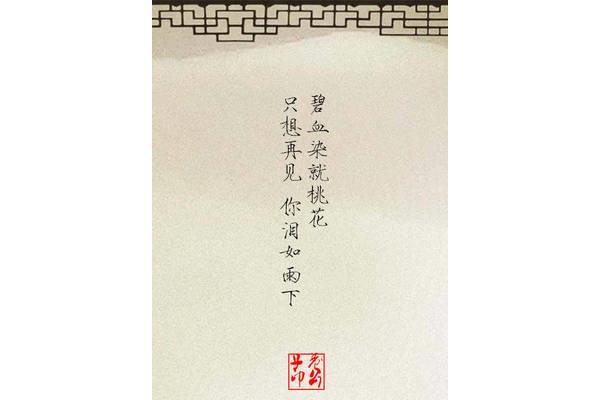 碧血染就桃花
只想再见 你泪如雨下